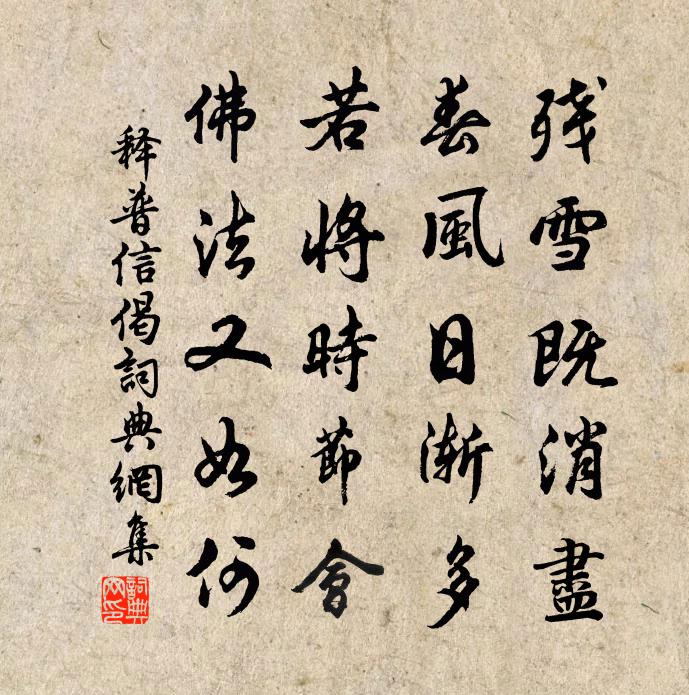 残雪既消盡
春風日漸多
若將時節會
佛法又如何
釋普信偈詞典網集
詞典网印